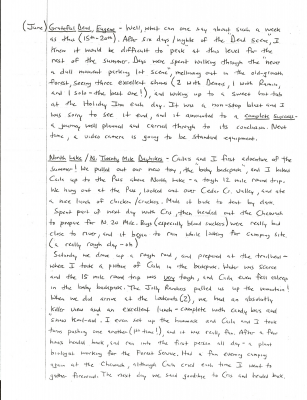 (June) Grateful Dead, Eugene - Well, what can one say about such a week
as this (15th-20th). After six days/nights of the Dead Scene, I
knew it would be difficult to peak at this level for the
rest of the summer. Days were spent walking through the "never
a dull moment parking lot scene", mellowing out in the old-growth
forest, seeing three excellent shows (2 with Deanna, 1 with Ramin,
and 1 solo - the best one!), and waking up to a sauna hot tub
at the Holiday Inn each day. It was a non-stop blast and I
was sorry to see it end, and it amounted to a complete success -
a journey well planned and carried through to its conclusion. Next
time, a video camera is going to be standard equipment.
North Lake / N. Twenty Mile Daytrips - and I first adventure of the
summer! We pulled out our new toy, the baby backpack, and I hiked
up to the Pass above North Lake - a tough 12 mile round trip.
We hung out at the Pass, looked out over Cedar Cr. valley, and ate
a nice lunch of chicken/crackers. Made it back to tent by dark.
Spent part of next day with Cris, then headed out the Chewuch
to prepare for N. 20 Mile. Bugs (especially blood suckers) were really bad
close to river, and it began to rain while looking for camping site
(a really rough day - oh)
Saturday we drove up a rough road, and prepared at the trailhead -
when I took a picture of in the backpack. Water was scarce
and the 15 mile round trip was very tough, and even fell asleep
in the baby backpack. The Jolly Ranchers pulled us up the mountain!
When we did arrive at the lookouts (2), we had an absolutely
killer view and an excellent lunch - complete with candy bars and
. I even set up the hammock and and I took
turns pushing one another (1st time!), and it was really fun. After a few
hours headed back, and ran into the first person all day - a plant
biologist working for the Forest Service. Had a fun evening camping
again at the Chewuch, although cried each time I went to
gather firewood. The next day we said goodbye to Cris and headed back.